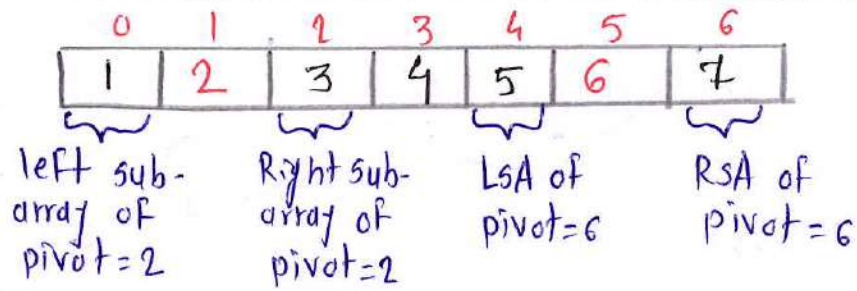 0 1 2 3 4 5 6
1 2 3 4 5 6 7
left sub-
array of
pivot=2
Right sub-
array of
pivot=2
LSA of
pivot=6
RSA of
pivot=6